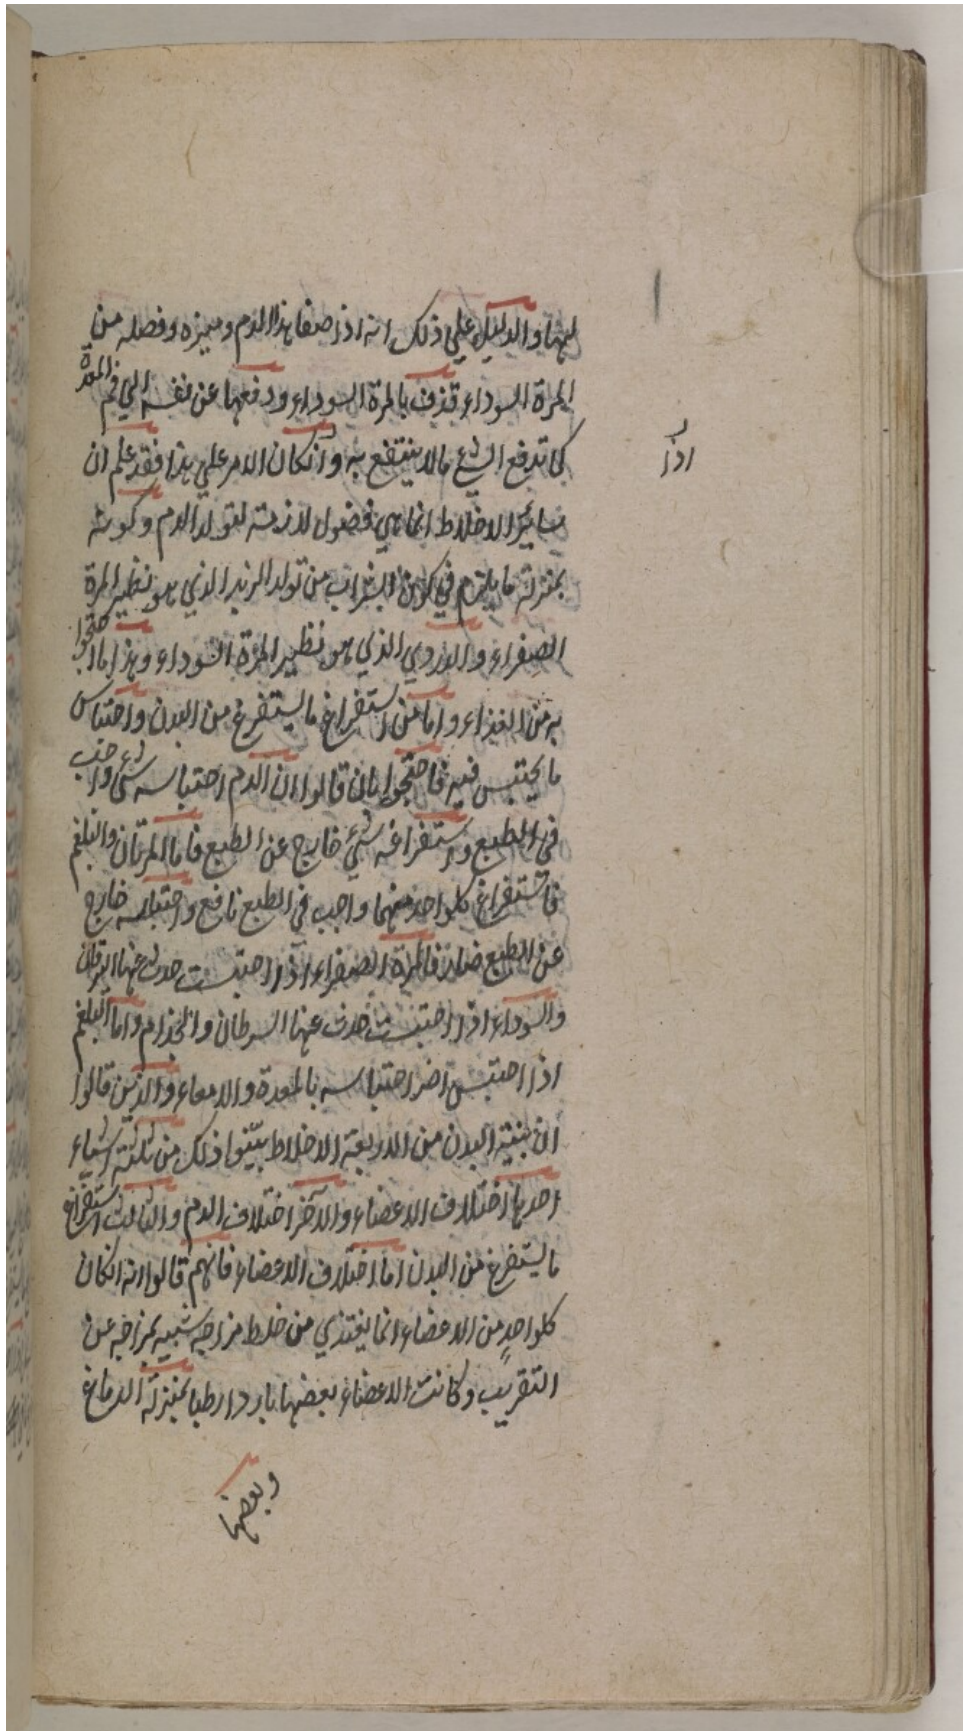 لهما والدليل علي ذلك انه اذا صفا هذا الدم وميزه وفصله من
المرة السوداء قذف بالمرة السوداء ودفعها عن نفسه الي فم المعدة
كما تدفع الشئ مالا ينتفع به وانكان الامر علي هذا فقد علم ان
اذا
سائر الاخلاط انما هي فضول لازمة لتولد الدم وكونه
بمنزلة ما يلزم في كون الشراب من تولد الزبد الذي هو نظير المرة
الصفراء والدردي الذي هو نظير المرة السوداء وهذا ما احتجوا
به من الغذاء واما من استفراغ ما يستفرغ من البدن واحتباس
ما يحتبس فيه فاحتجوا بان قالوا ان الدم احتباسه شئ واجب
في الطبع واستفراغه شئ خارج عن الطبع فاما المرتان والبلغم
فاستفراغ كلواحد منهما واجب في الطبع نافع واحتباسه خارج
عن الطبع ضار فالمرة الصفراء اذا احتبست حدث عنها اليرقان
والسوداء اذا احتبست حدث عنها السرطان والجذام واما البلغم
اذا احتبس اضر احتباسه بالمعدة والامعاء والذين قالوا
ان بنية البدن من الاربعة الاخلاط بينوا ذلك من ثلثة اشياء
احدها اختلاف الاعضاء والآخر اختلاف الدم والثالث استفراغ
ما يستفرغ من البدن اما اختلاف الاعضاء فانهم قالوا انه انكان
كلواحد من الاعضاء انما يغتذي من خلط مزاجه شبيه بمزاجه عن
التقريب وكانت الاعضاء بعضها باردا رطبا بمنزلة الدماغ
وبعضها